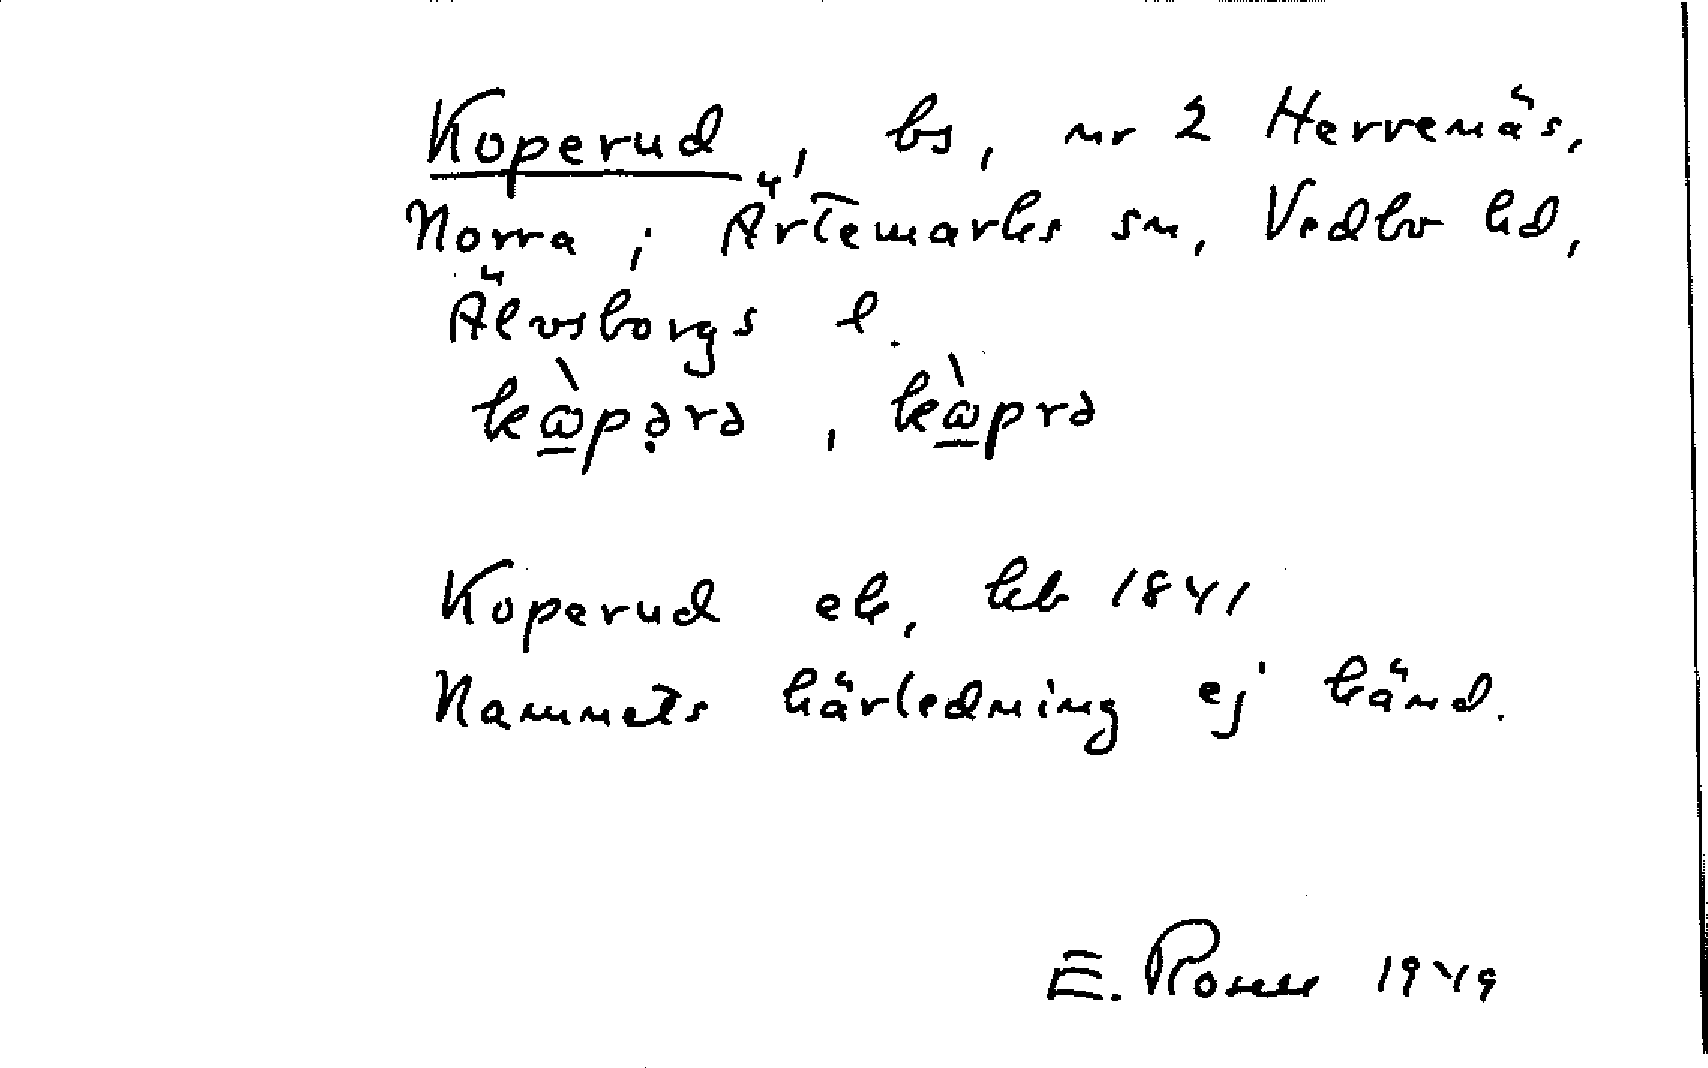 Koperud, bs, nr 2 Herrenäs,
Norra; Ärtemarks sn, Vedbo hd,
Älvsborgs l.
kɷ̲̀pə̣rə, kɷ̲̀prə
Koperud ek, kb 1841
Namnets härledning ej känd.
E. 1949